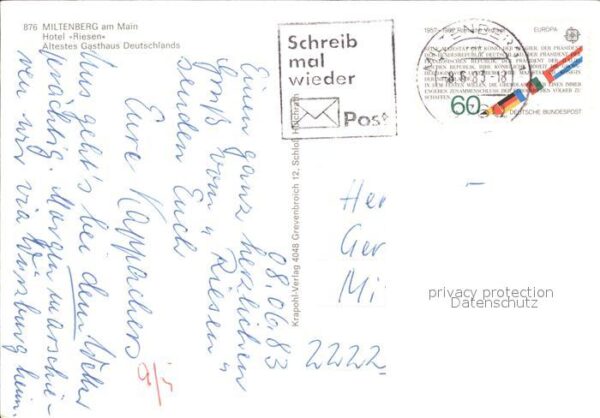 876 MILTENBERG am Main
Hotel »Riesen«
Ältestes Gasthaus Deutschlands
Schreib
mal
wieder
Post
1957-1982 Römische Verträge
EUROPA
60
DEUTSCHE BUNDESPOST
08.06.83
Einen ganz herzlichen
Gruß vom "Riesen"
senden Euch
Eure Kappachers
Uns geht's bei dem Wetter
prächtig. Morgen marschie-
ren wir via Würzburg heim.
Krapohl-Verlag 4048 Grevenbroich 12, Schloß Hülchrath
Her
Ger
Mi
2222
privacy protection
Datenschutz